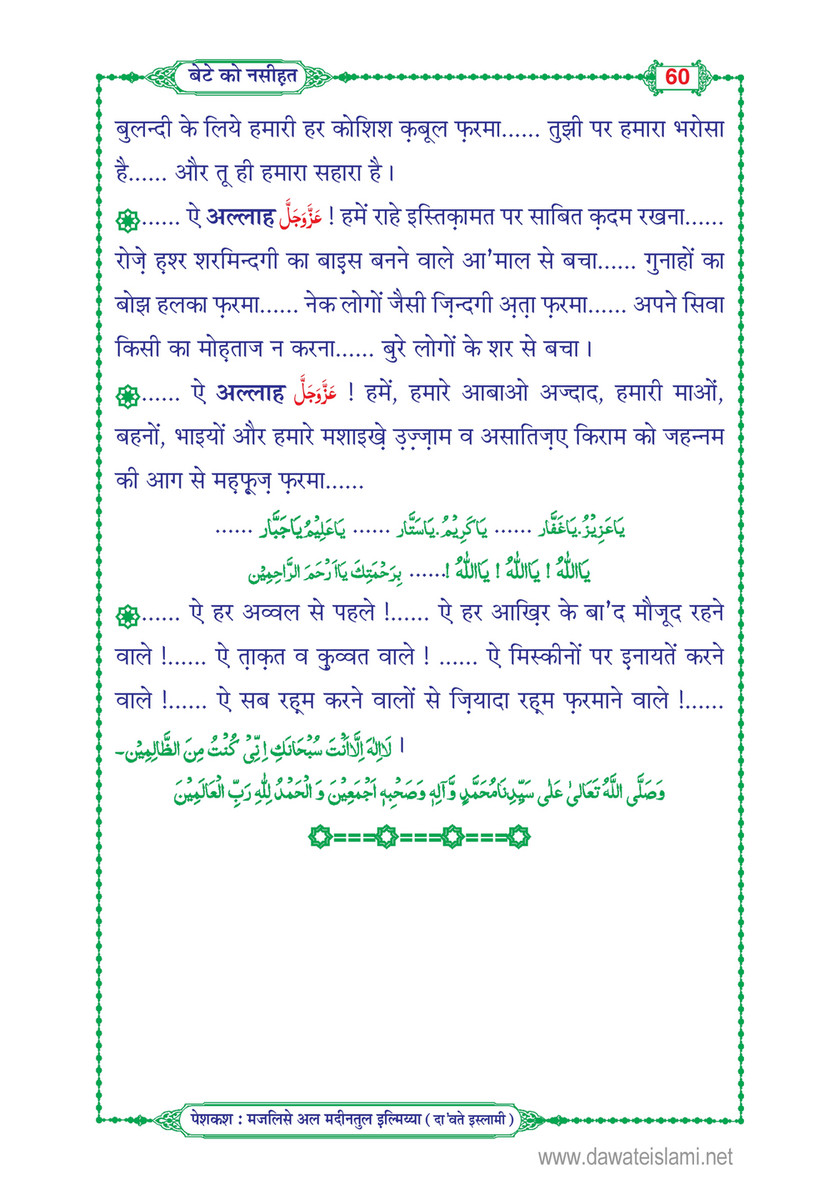 बेटे को नसीह़त
60
बुलन्दी के लिये हमारी हर कोशिश क़बूल फ़रमा...... तुझी पर हमारा भरोसा
है...... और तू ही हमारा सहारा है ।
...... ऐ अल्लाह عَزَّوَجَلَّ ! हमें राहे इस्तिक़ामत पर साबित क़दम रखना......
रोज़े ह़श्र शरमिन्दगी का बाइ़स बनने वाले आ'माल से बचा...... गुनाहों का
बोझ हलका फ़रमा...... नेक लोगों जैसी ज़िन्दगी अ़ता़ फ़रमा...... अपने सिवा
किसी का मोह़ताज न करना...... बुरे लोगों के शर से बचा ।
...... ऐ अल्लाह عَزَّوَجَلَّ ! हमें, हमारे आबाओ अज्दाद, हमारी माओं,
बहनों, भाइयों और हमारे मशाइख़े उ़ज़्ज़ाम व असातिज़ए किराम को जहन्नम
की आग से मह़फ़ूज़ फ़रमा......
يَاعَزِيْزُ.يَاغَفَّار ...... يَاكَرِيْمُ.يَاسَتَّار ...... يَاعَلِيْمُ يَاجَبَّار ......
يَااللهُ ! يَااللهُ ! يَااللهُ !...... بِرَحْمَتِكَ يَااَرْحَمَ الرَّاحِمِيْن
...... ऐ हर अव्वल से पहले !...... ऐ हर आख़िर के बा'द मौजूद रहने
वाले !...... ऐ ता़क़त व कु़व्वत वाले ! ...... ऐ मिस्कीनों पर इ़नायतें करने
वाले !...... ऐ सब रह़्म करने वालों से ज़ियादा रह़्म फ़रमाने वाले !......
لَااِلٰهَ اِلَّااَنْتَ سُبْحَانَكَ اِنِّىْ كُنْتُ مِنَ الظَّالِمِيْن۔ ।
وَصَلَّى اللَّهُ تَعَالىٰ عَلٰى سَيِّدِنَامُحَمَّدٍ وَّآلِهٖ وَصَحْبِهٖ اَجْمَعِيْنَ وَ الْحَمْدُ لِلّٰهِ رَبِّ الْعَالَمِيْنَ
===
===
===
पेशकश : मजलिसे अल मदीनतुल इल्मिय्या ( दा'वते इस्लामी )
www.dawateislami.net